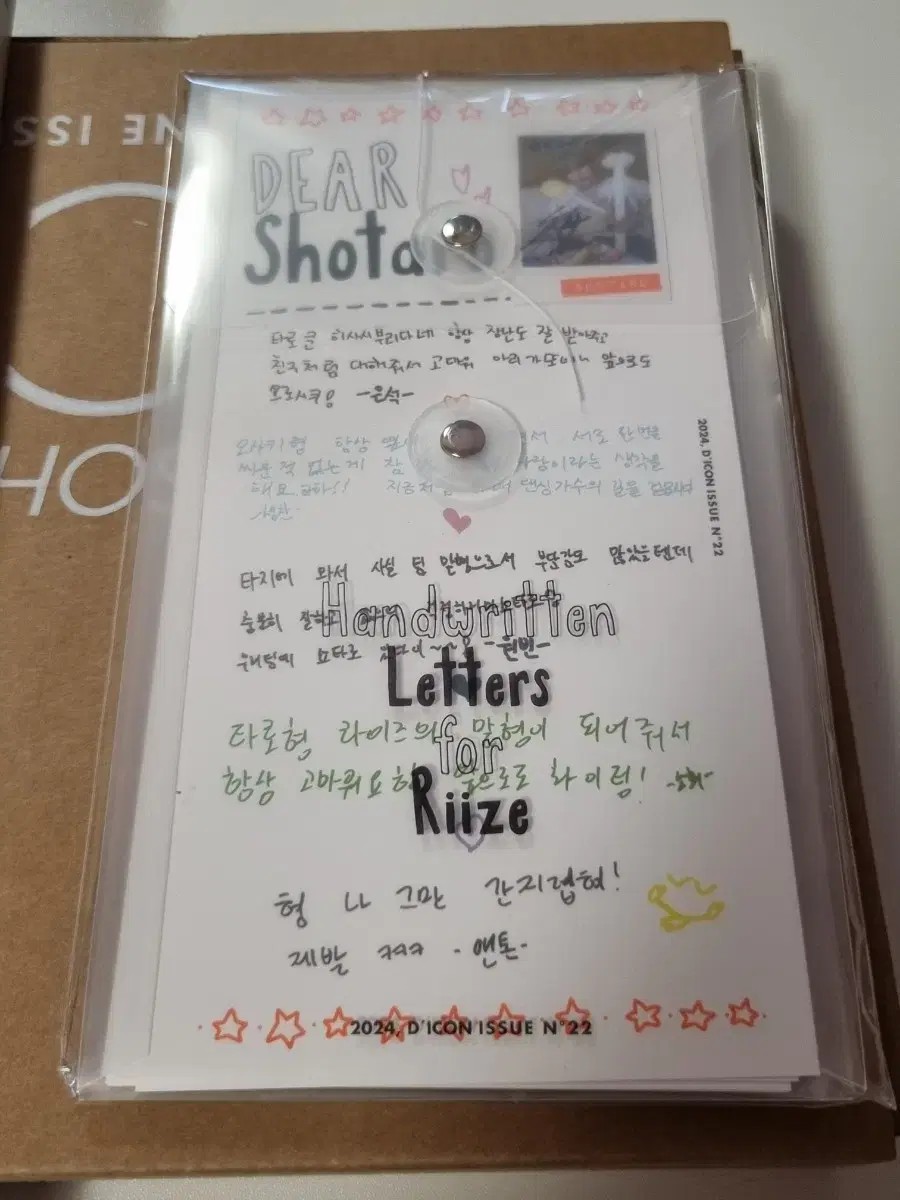 DEAR
Shotaro
SHOTARO
타로 큰 히사시부리다네 항상 장난도 잘 받아주고
친구처럼 대해줘서 고마워 아리가또이니 앞으로도
요로시쿠용 -은석-
오사키형 항상 서로 한번을
싸운 적 없는게 참 사랑이라는 생각을
해요 지금처럼 댄싱가수의 길을
타지에 와서 사실 팀 맏형으로서 부담감도 많았을텐데
충분히 잘하고
우리팀에 쇼타로 -원빈-
타로형 라이즈의 맏형이 되어줘서
항상 고마워요 앞으로도 화이팅!
형 나 그만 간지럽혀!
제발 ㅋㅋㅋ -앤톤-
2024, D'ICON ISSUE N°22
Handwritten
Letters
for
Riize
2024, D'ICON ISSUE N°22